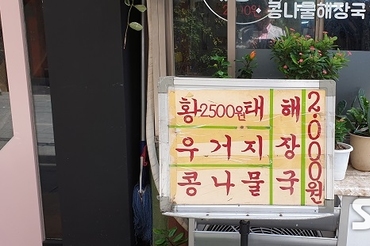 콩나물해장국
황2500원태
우거지
콩나물
해장국
2.000원